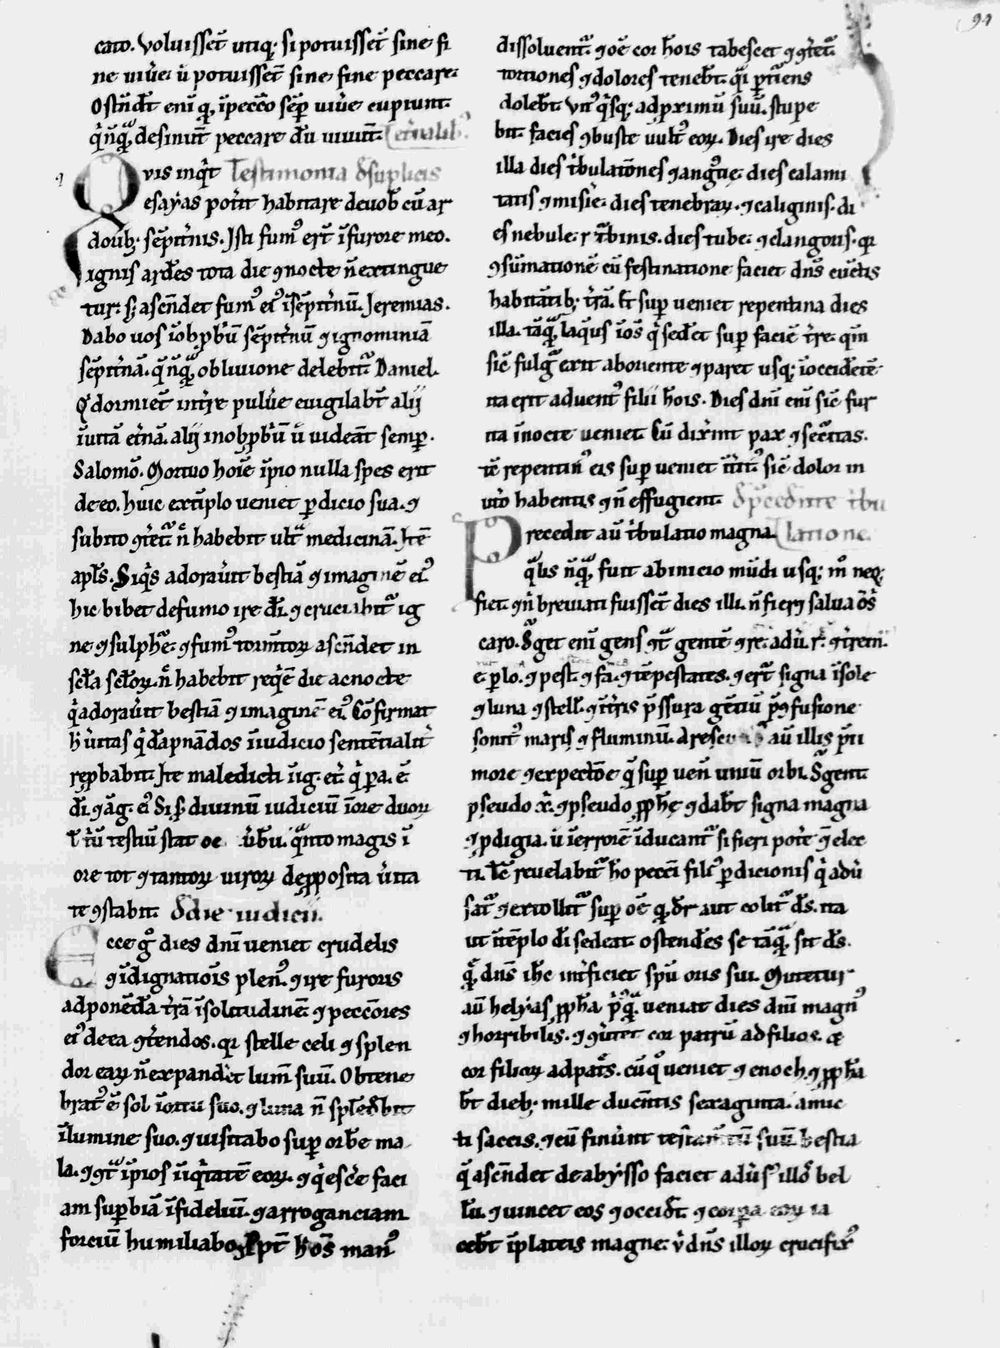 94
cato. Voluissēt utiq; si potuissēt sine fi
ne uiu̾e ū potuissēt sine fine peccare.
Ostn̄dt̄ eni q; īpecc̄o sēp uiu̾e cupiunt.
q̄ nq̄ desinūt peccare dū uiuūt.
Testimonia d̄ suplicis
Qvis inqͥt
esayas potīt habitare deuob̄ cū ar
dorib; sēpit̾nis. Isti fumꝰ erūt ī furore meo.
ignis ardēs tota die ⁊ nocte n̄ extingue
tur. s; ascēndet fumꝰ eiꝰ ī sēpit̾nū. Jeremias.
Dabo uos ī obp̄bū sēpit̾nū ⁊ ignominiā
sēpit̾nā. q̄ nq̄ obliuione delebit̄ Daniel.
Q̄ dormiēt īt̾re puluere euigilabt̄ alii
ī uitā et̾nā. alii īnobp̄bū ū uideāt semp̄.
Salomō. Mortuo hoīe īpio nulla spes erit
de eo. huic extīplo ueniet p̄dicio sua. ⁊
subito ⁊t̾et̄ n̄ habebit ult̄ medicinā. Itē
apl̄s. Siq̄s adorau̾it bestiā ⁊ imaginē eiꝰ
hic bibet de fumo ire dī. ⁊ cruciabit̄ ig
ne ⁊ sulphē. ⁊ fumꝰ tormt̄oꝝ ascēndet in
sc̄la sc̄loꝝ. n̄ habebt̄ req̄ē die ac nocte
q̄ adorau̾it bestiā ⁊ imaginē eiꝰ. Cōfirmat
h̄ u̾itas q̄dā pnādos ī iudicio sentētialit̾
rep̄babit. Ite maledicti ī ig. et̾. q̄ pa. ē
dī. ⁊ āg. eꝰ Si s̄ diuinū iudiciū ī ore duoꝝ
l̄ t̾ū testiū stat oē u̾bū. q̄nto magis ī
ore tot ⁊ tantoꝝ uiroꝝ dep̄posita u̾ita
te ⁊stabit. d̄ die iudicii.
Ecce g̊ dies dn̄i ueniet crudelis
⁊ īdignatiōis plenꝰ. ⁊ ire furoris
ad ponēdā t̾rā ī solitudinē. ⁊ peccōres
eiꝰ de ea ⁊t̾endos. qr stelle celi ⁊ splen
dor eaꝝ n̄ expandēt lumē suū. Obtene
bratꝰ ē sol ī ortu suo. ⁊ luna n̄ splēdebit
ī lumine suo. ⁊ uisitabo sup̄ orbē ma
la. ⁊ ⁊t̄ īpios īiq̄tatē eoꝝ. ⁊ q̄escē faci
am sup̄biā īfideliū. ⁊ arroganciam
forciū humiliabo. Ppt̄ h̄ oēs manꝰ
dissoluent̄. ⁊ oē cor hōis tabescet ⁊ ⁊t̾et̄.
tortiones ⁊ dolores tenebt̄. q̄i p̄tiens
dolebt̄. Vnꝰ q̄sq; ad p̄ximū suū. stupe
bit. facies ⁊buste uultꝰ eoꝝ. Dies ire dies
illa dies t̾bulatōnes ⁊ angꝰtie. dies calami
tatis ⁊ misie̾. dies tenebraꝝ. ⁊ caliginis. di
es nebule. ⁊ t̄binis. dies tube. ⁊ clangoris. qr
⁊sūmationē cū festinatione faciet dn̄s cūctis
habitātib; t̾rā. Et sup ueniet repentina dies
illa. tāq̄ laq̄us ī oēs q̄ sedēt sup faciē t̾re. qm̄
sic̄ fulḡ exit ab oriente ⁊ paret usq; ī occidētē.
ita erit adventꝰ filii hōis. Dies dn̄i eni sic̄ fur
ita ī nocte ueniet. Cū dix̾int pax ⁊ sec̄itas.
tc̄ repentinꝰ eis sup ueniet īt̾itꝰ. sic̄ dolor in
ut̾o habentis ⁊ n̄ effugient. d̄ p̄cedēte t̾bu
latione.
Precedit aū t̾bulatio magna.
q̄lis nq̄ fuit ab inicio mūdi usq; m̊ neq;
fiet. ⁊ n̄ breuiati fuissēt dies illi. n̄ fieri salua ōs̄
caro. S̄get eni gens ⁊t̄ gentē ⁊ re. adu̾. r̄. ⁊ t̾rem̄.
e. p lo. ⁊ pest̄. ⁊ fa. ⁊ tēpestates. ⁊ er̄t signa ī sole
⁊ luna ⁊ stell. ⁊ ī t̾ris p̄ssura gētiū p̄ ⁊fusione
sonitꝰ maris ⁊ fluminū. aresc aū illis p̄ ti
more ⁊ expectōe q̄ sup̄ uen̄ uniū orbi. S̄gent
pseudo x̄. ⁊ pseudo p̄phē. ⁊ dabt̄ signa magna
⁊ p̄digia. ū ī errorē īducant̄ si fieri pot̄ ē elec
ti. Tc̄ reuelabit̄ hō pecc̄i filiꝰ p̄dicionis q̄ adu̾
sat̄ ⁊ extollit̄ sup̄ oē q; d̄r aut colit̄ dꝰs. ita
ut ī tēplo dī sedeat ostendēs se tāq̄ sit dꝰs.
q̄ dn̄s ihc̄ int̾ficiet spū oris sui. Mitetur
aū helyas p̄pha p̾q̄ ueniat dies dn̄i magnꝰ
⁊ horribilis. ⁊ ⁊u̾tet cor patrū ad filios. &
cor filioꝝ ad patꝰ. cū q̊ ueniet ⁊ enoch. ⁊ p̄pha
bt̄ dieb; mille ducētis sexaginta. amic
ti saccis. ⁊ cū finīt testam tū suū bestia
q̄ ascēndet de abysso faciet adu̾s illꝰ bel
lū. ⁊ uincet eos ⁊ occidt̄. ⁊ corpa eoꝝ ia
cebt̄ ī plateis magne. ū dn̄s illoꝝ crucifixꝰ